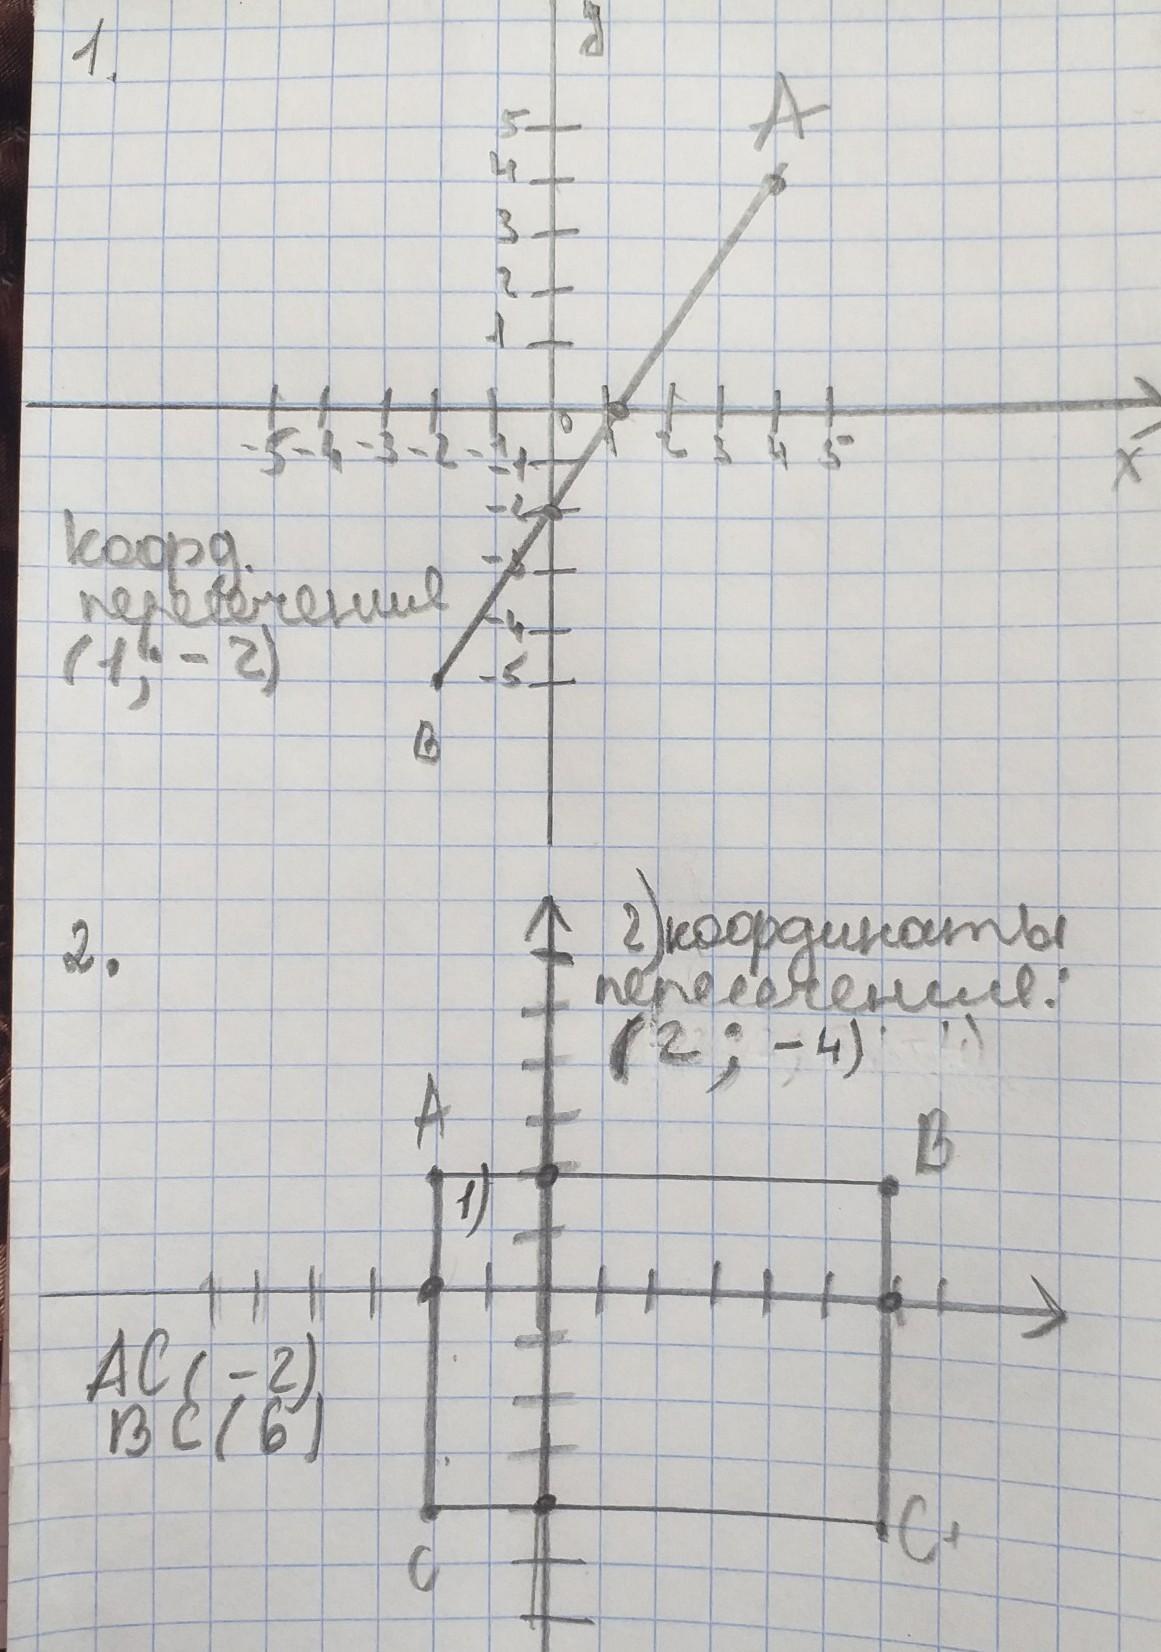 1.
y
A
5
4
3
2
1
-5 -4 -3 -2 -1 0 1 2 3 4 5
x
-1
-2
-3
-4
-5
коорд.
пересечения
(1; -2)
B
2.
2) координаты
пересечения:
(2; -4)
A
B
1)
AC(-2)
BC(6)
C
C1